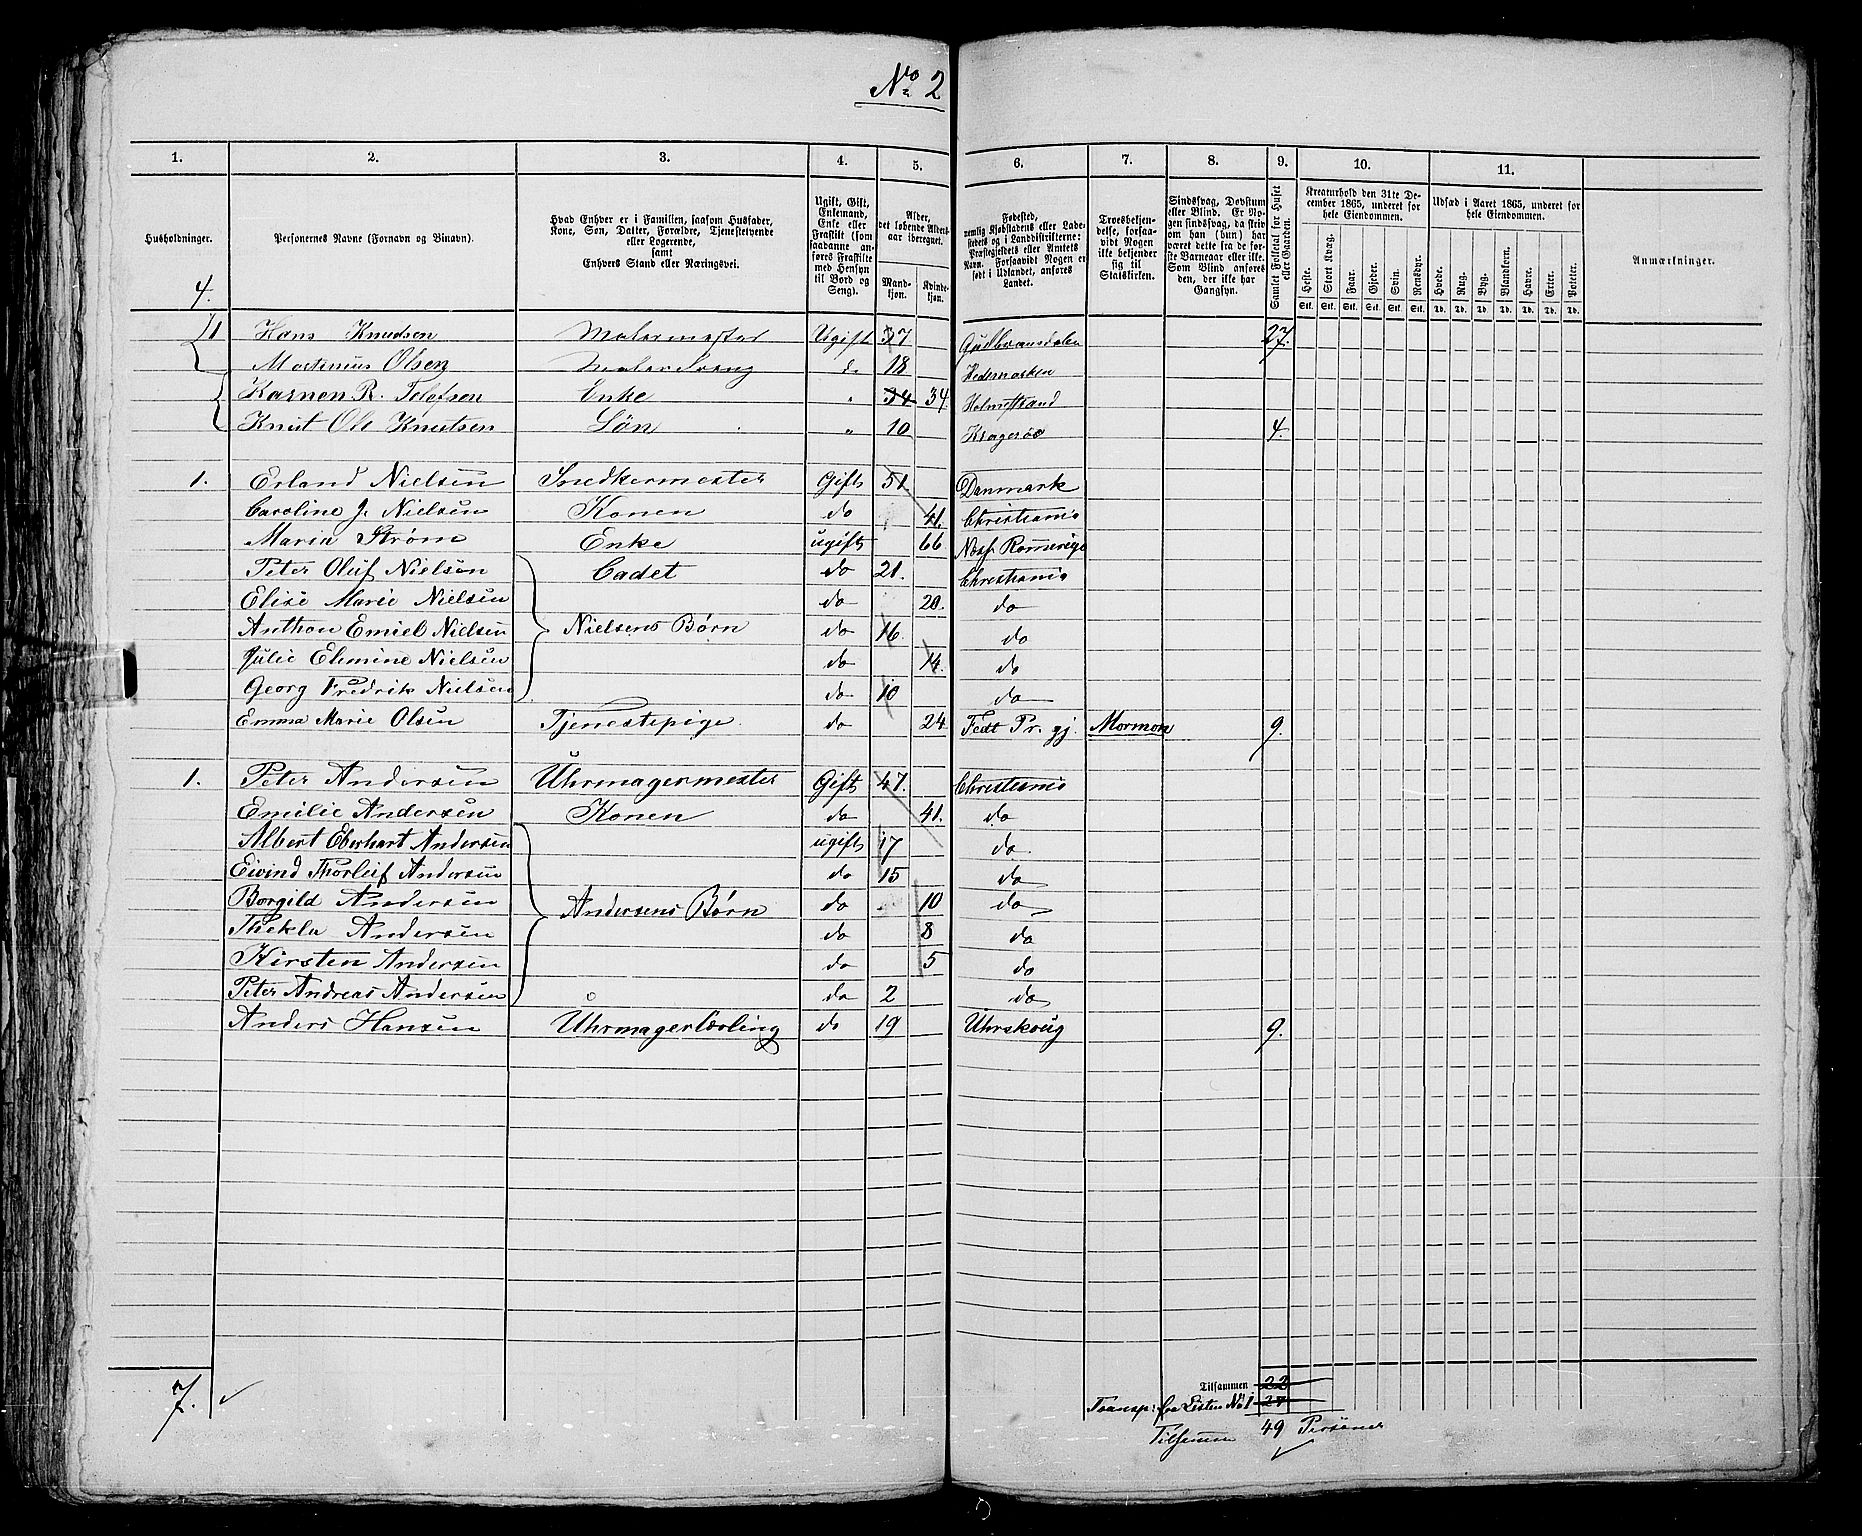 No 2
1. 2. 3. 4. 5. 6. 7. 8. 9. 10. 11.
Husholdninger.
Personernes Navne (Fornavn og Binavn).
Hvad Enhver er i Familien, saasom Husfader, Kone, Søn, Datter, Forældre, Tjenestetyende eller Logerende, samt Enhvers Stand eller Næringsvei.
Ugift, Gift, Enkemand, Enke eller Fraskilt (som saadanne anføres Fraskilte med Hensyn til Bord og Seng).
Alder, det løbende Aldersaar iberegnet.
Mandkjøn. Kvindekjøn.
Fødested, nemlig Kjøbstadens eller Ladestedets og i Landdistrikterne: Præstegjeldets eller Amtets Navn. Forsaavidt Nogen er født i Udlandet, anføres Landet.
Troesbekjendelse, forsaavidt Nogen ikke bekjender sig til Statskirken.
Sindssvag, Døvstum eller Blind. Er Nogen sindssvag, da skrives om han (hun) har været dette fra de første Barneaar eller ikke. Som Blind anføres den, der ikke har Gangsyn.
Samlet Folketal for Huset eller Gaarden.
Kreaturhold den 31te December 1865, underet for hele Eiendommen.
Heste. Stort Kvæg. Faar. Gjeder. Svin. Rensdyr.
Stk. Stk. Stk. Stk. Stk. Stk.
Udsæd i Aaret 1865, underet for hele Eiendommen.
Hvede. Rug. Byg. Blandkorn. Havre. Erter. Poteter.
Td. Td. Td. Td. Td. Td. Td.
Anmærkninger.
4.
Hans Knudsen Malermester Ugift 37 Gudbransdalen 27.
Martinus Olsen Malersveng do 18 Hedemarken
Karnen R. Enke " 34 34 Holmestrand
Knut Ole Knutsen Søn " 10 Kragerøe 4.
1. Erland Nielsen Snedkermester Gift 51 Danmark
Caroline J. Nielsen Konen do 41. Christiania
Maria Strøm Enke ugift 66 Romerige
Peter Oluf Nielsen Cadet do 21. Christiania
Elise Marie Nielsen do 20. do
Anthon Emiel Nielsen Nielsens Børn do 16. do
Julie Elimine Nielsen do 14. do
Georg Fredrik Nielsen do 10 do
Emma Marie Olsen Tjenestepige. do 24 Fedt Pr. gj. Mormon 9.
1. Peter Andersen Uhrmagermester Gift 47. Christiania
Emilie Andersen Konen do 41. do
Albert Eberhart Andersen ugift 17 do
Eivind Thorleif Andersen do 15 do
Borgild Andersen Andersens Børn do 10 do
Thekla Andersen do 8 do
Kirsten Andersen do 5 do
Peter Andreas Andersen do 2 do
Anders Hansen Uhrmagerlærling do 19 Uhrskoug 9.
7.
Tilsammen 22
Transp: fra Listen No 1 27
Tilsammen 49 Personer